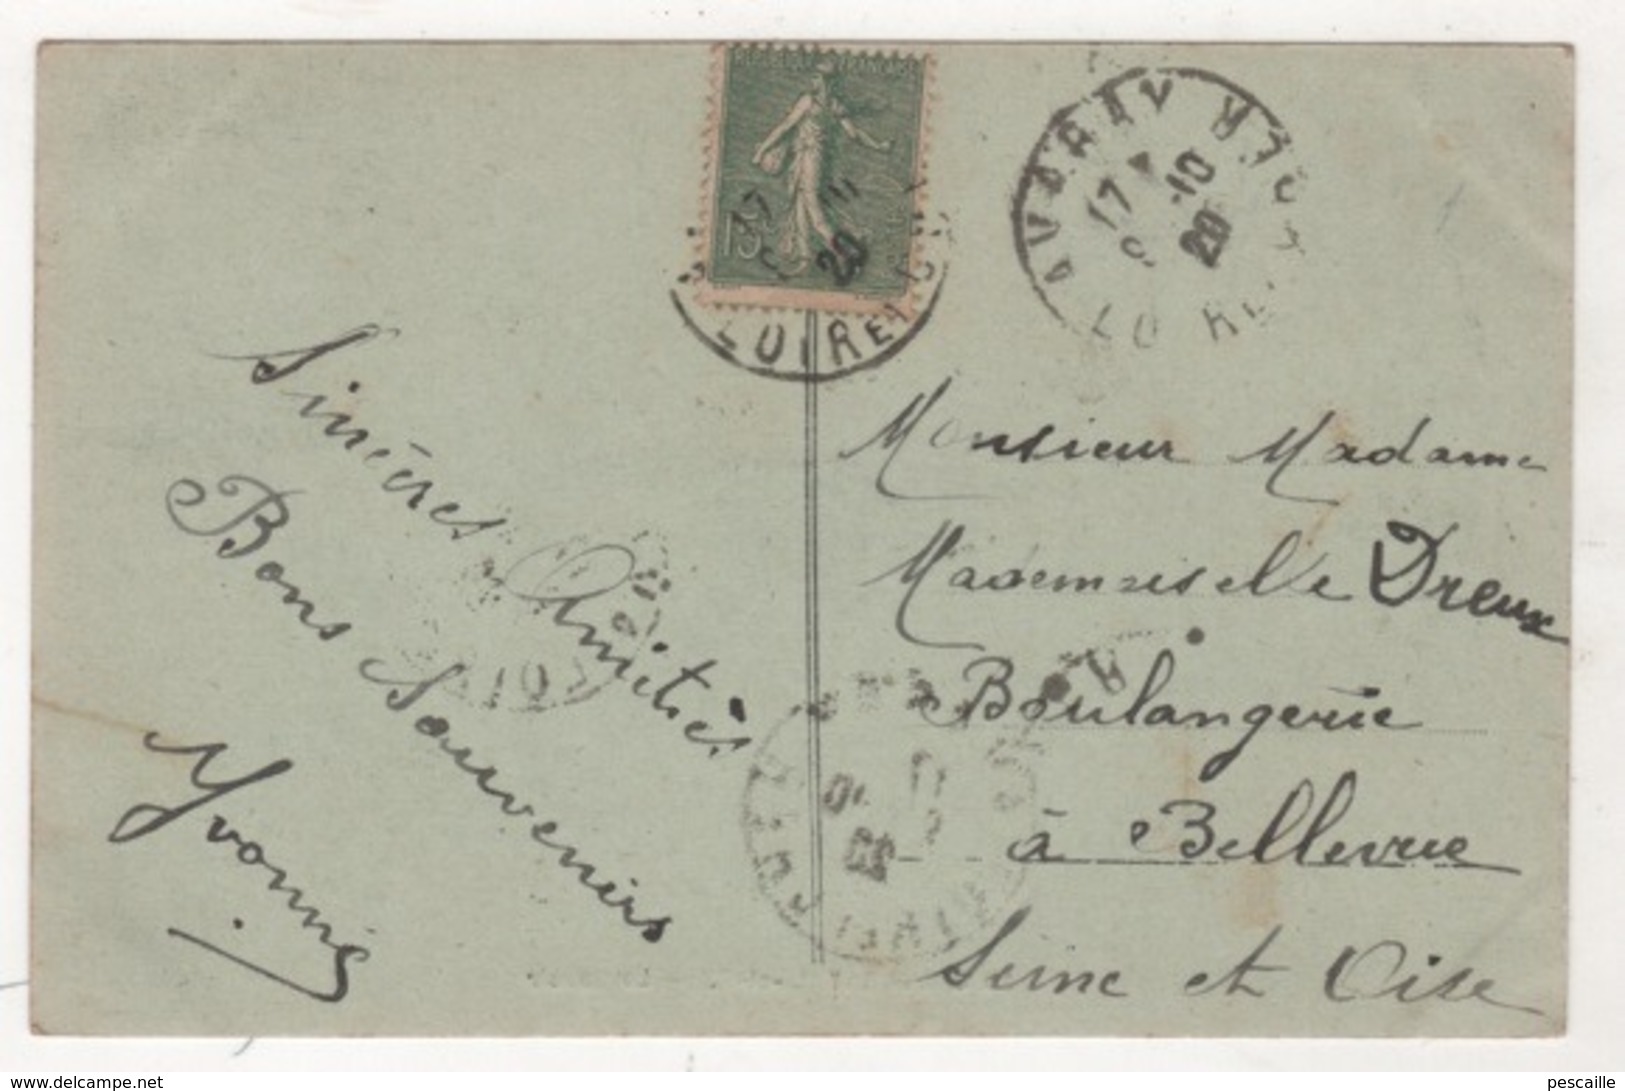 15
20
LOIRE
17
10
20
Sincères Amitiés
Bons Souvenirs
Yvonne
Monsieur Madame
Mademoiselle Dreux
Boulangerie
à Bellevue
Seine et Oise
www.delcampe.net
pescaille